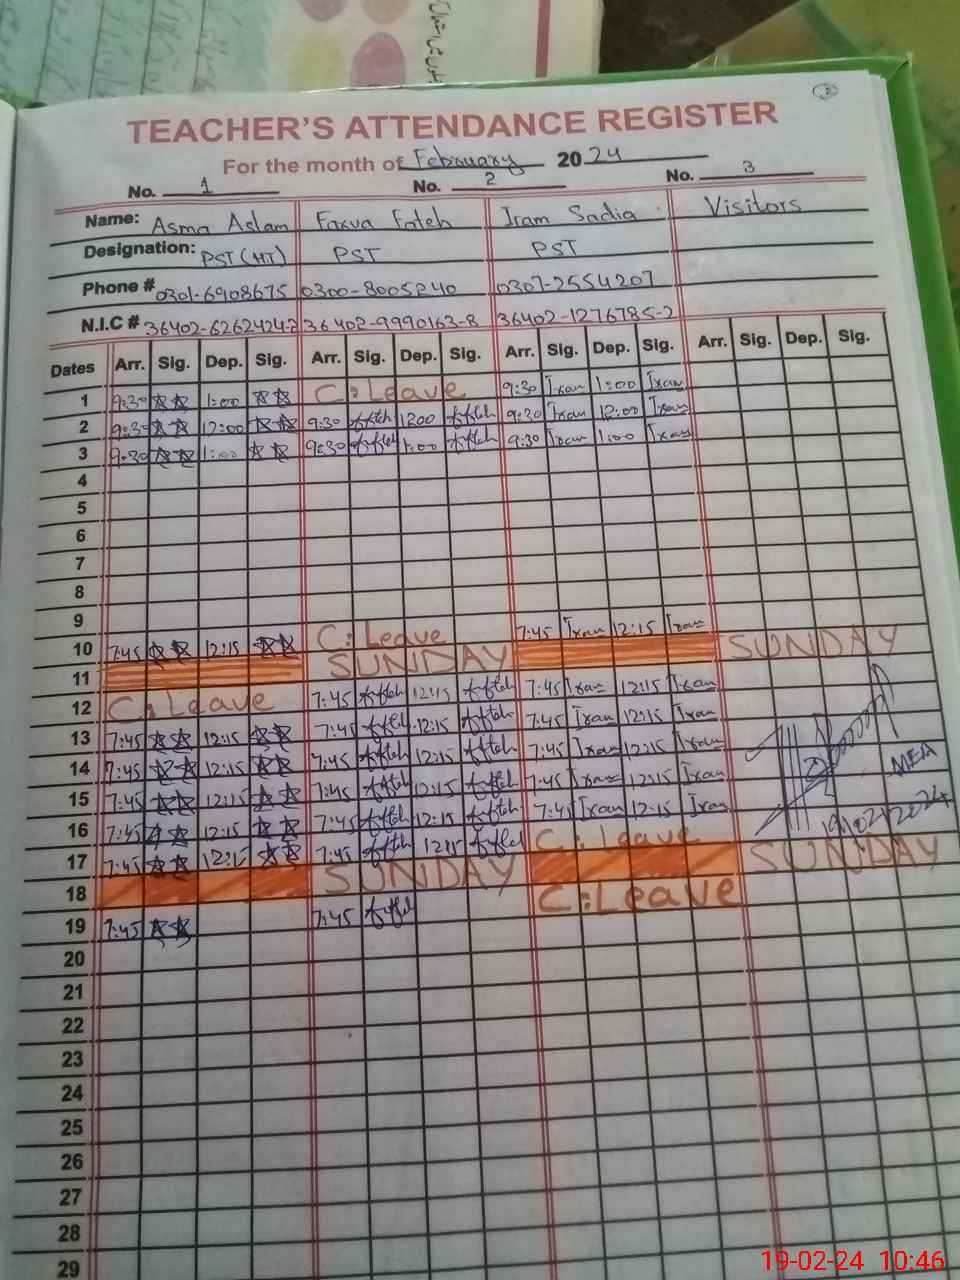 3
TEACHER'S ATTENDANCE REGISTER
For the month of February 2024
No. 1 No. 2 No. 3
Name: Asma Aslam Farva Fateh Iram Sadia Visitors
Designation: PST (HT) PST PST
Phone # 0301-6908675 0300-8005240 0307-2554207
N.I.C # 36402-6262424-2 36402-9990163-8 36402-1276785-2
Dates Arr. Sig. Dep. Sig. Arr. Sig. Dep. Sig. Arr. Sig. Dep. Sig. Arr. Sig. Dep. Sig.
1 9:30 1:00 C:Leave 9:30 Iram 1:00 Iram
2 9:30 12:00 9:30 ffteh 1200 ffteh 9:30 Iram 12:00 Iram
3 9:30 1:00 9:30 ffteh 1:00 ffteh 9:30 Iram 1:00 Iram
4
5
6
7
8
9
10 7:45 12:15 C:Leave 7:45 Iram 12:15 Iram
11 SUNDAY SUNDAY
12 C:Leave 7:45 ffteh 12:15 ffteh 7:45 Iram 12:15 Iram
13 7:45 12:15 7:45 ffteh 12:15 ffteh 7:45 Iram 12:15 Iram
14 7:45 12:15 7:45 ffteh 12:15 ffteh 7:45 Iram 12:15 Iram
15 7:45 12:15 7:45 ffteh 12:15 ffteh 7:45 Iram 12:15 Iram MEA
16 7:45 12:15 7:45 ffteh 12:15 ffteh 7:45 Iram 12:15 Iram 19/02/2024
17 7:45 12:15 7:45 ffteh 12:15 ffteh C:Leave
18 SUNDAY SUNDAY
19 7:45 7:45 ffteh C:Leave
20
21
22
23
24
25
26
27
28
29
19-02-24 10:46